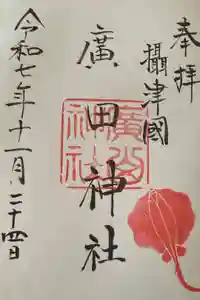 奉拝
攝津國
廣田神社
令和七年十一月二十四日
廣田
神社